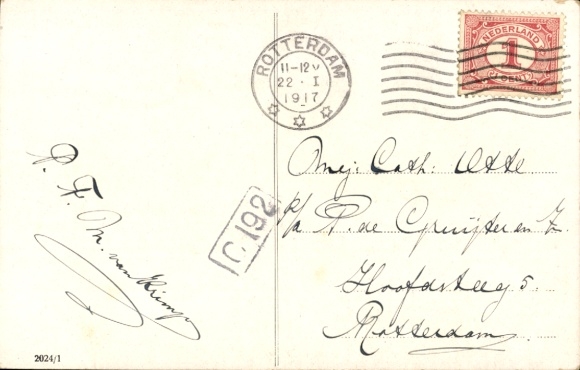 ROTTERDAM
11-12 V
22 . I
1917
NEDERLAND
1
CENT
Mej: Cath: Otte
p/a P. de Gruijter en Z.
Hoofdsteeg 5.
Rotterdam
C 192
P. F. M. van
2024/1